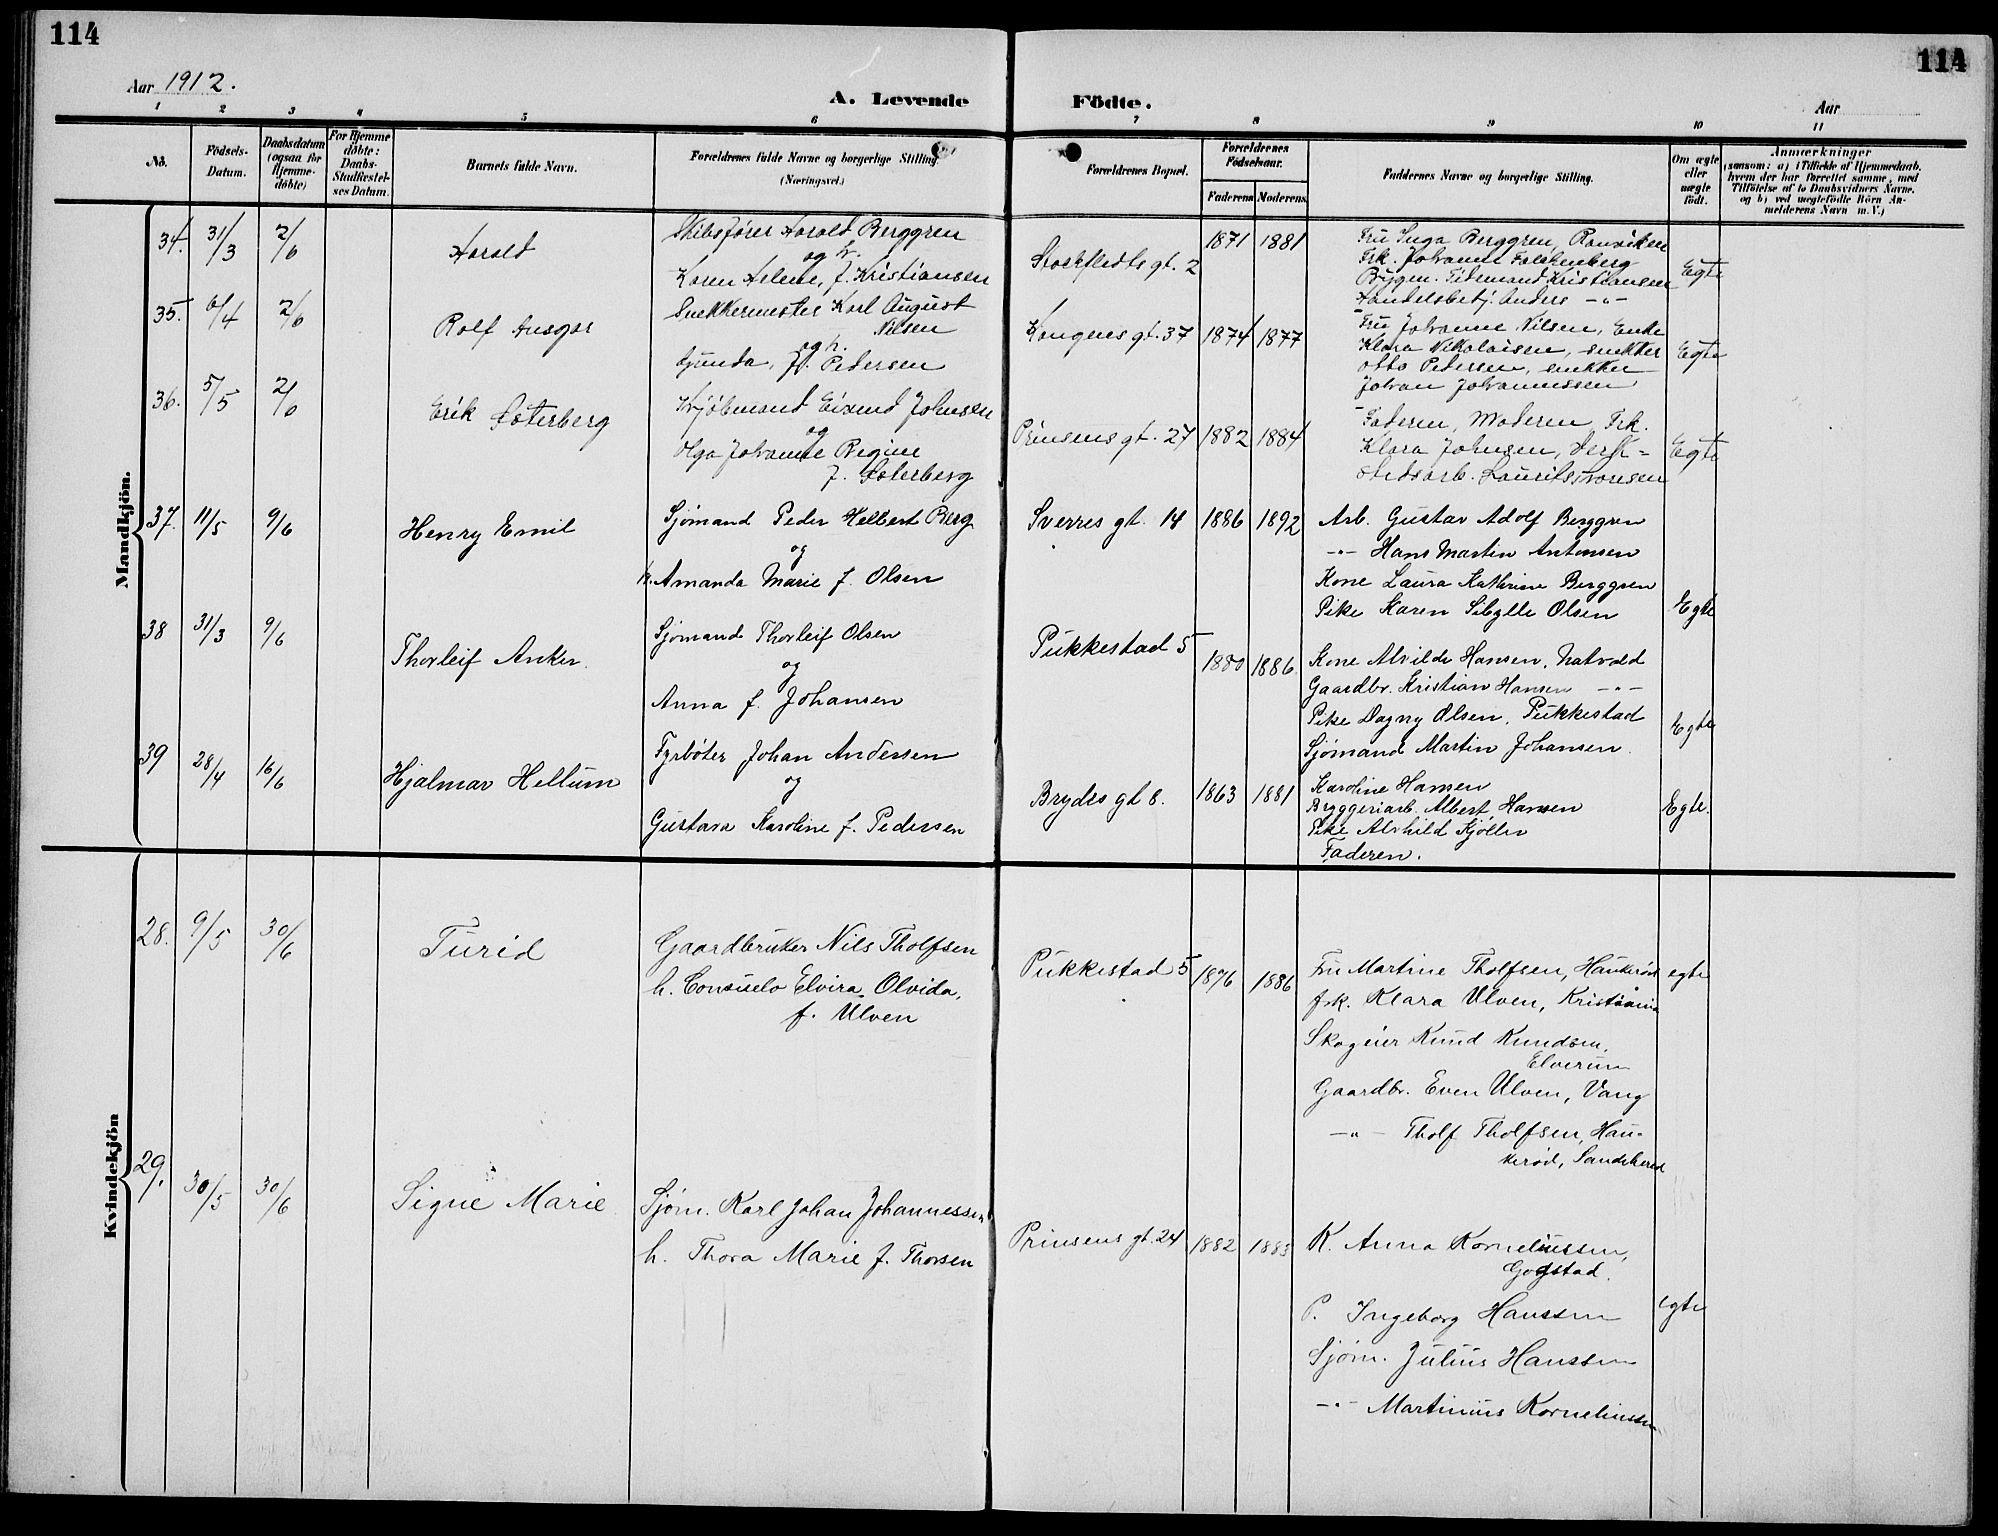 114
114
Aar 1912.
A. Levende Födte.
Aar
1 2 3 4 5 6 7 8 9 10 11
No.
Födsels-Datum.
Daabsdatum (ogsaa for Hjemme-döbte)
For Hjemme döbte: Daabs-Stadfæstel-ses Datum.
Barnets fulde Navn.
Forældrenes fulde Navne og borgerlige Stilling
(Næringsvei.)
Forældrenes Bopæl.
Forældrenes Födselsaar.
Faderens Moderens
Faddernes Navne og borgerlige Stilling.
Om ægte eller uægte födt.
Anmærkninger
(saasom: a) i Tilfælde af Hjemmedaab,
hvem der har forrettet samme, med
Tilföielse af to Daabsvidners Navne,
og b) ved uægtefödte Börn An-
melderens Navn m. V.)
Mandkjön.
34. 31/3 2/6 Harald
Skibsfører Harald Berggren
og h.
Karen Helene, f. Kristiansen
Stockfledts gt. 2
1871 1881
Fru Inga Berggren, Ranviken
Frk. Johanne Falchenberg
Bygm. Tidemand Kristiansen
Handelsbetj. Anders -"-
Egte
35. 6/4 2/6 Rolf Ansgar
Snekkermester Karl August
Nilsen
og h.
Gunda, f. Pedersen
Kongens gt. 37
1874 1877
Fru Johanne Nilsen, Enke
Klara Nikolaisen, snekker
Otto Pedersen, snekker
Johan Johannessen
Egte
36. 5/5 2/6 Erik Østerberg
Kjøbmand Eivind Johnsen
og
Olga Johanne Regine
f. Østerberg
Prinsens gt. 27
1882 1884
Faderen, Moderen, Frk.
Klara Johnsen, Verk-
stedsarb. Laurits Svensen
Egte
37. 11/5 9/6 Henry Emil
Sjømand Peder Helbert Berg
og
h. Amanda Marie f. Olsen
Sverres gt. 14
1886 1892
Arb. Gustav Adolf Berggren
-"- Hans Martin Antonsen
Kone Laura Kathrine Berggren
Pike Karen Sibylle Olsen
Egte
38 31/3 9/6 Thorleif Anker.
Sjømand Thorleif Olsen
og
Anna f. Johansen
Pukkestad 5
1880 1886.
Kone Alvilde Hansen, Natvold
Gaardbr. Kristian Hansen -"-
Pike Dagny Olsen, Pukkestad
Sjømand Martin Johansen.
Egte
39 28/4 16/6 Hjalmar Hellum
Fyrbøter Johan Andersen
og
Gustava Karoline f. Pedersen
Brydes gt 8.
1863 1881
Karoline Hansen
Bryggeriarb. Albert Hansen
Pike Alvhild Kjøller
Faderen.
Egte.
Kvindekjön
28. 9/5 30/6 Turid
Gaardbruker Nils Tholfsen
h. Consuelo Elvira Olvida,
f. Ulven
Pukkestad 5
1876 1886
Fru Martine Tholfsen, Haukerød
frk. Klara Ulven, Kristiania
Skogeier Knud Knudsen,
Elverum
Gaardbr. Even Ulven, Vang
-"- Tholf Tholfsen, Hau-
kerød, Sandeherred
egte
29. 30/5 30/6 Signe Marie
Sjøm. Karl Johan Johannessen
h. Thora Marie f. Thorsen
Prinsens gt. 24
1882 1883
K. Anna Korneliussen,
Gogstad.
P. Ingeborg Hanssen
Sjøm. Julius Hanssen
-"- Martinius Korneliussen
egte